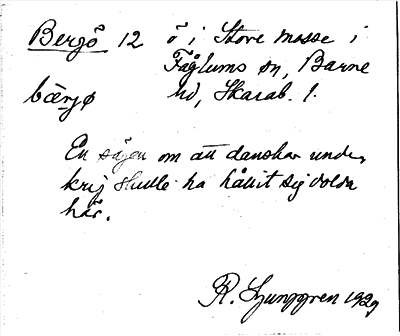 Bergö 12 ö i Store mosse i
Fåglums sn, Barne
bærjø hd, Skarab. l.
En sägen om att danskar under
krig skulle ha hållit sig dolda
här.
R. Ljunggren 1929